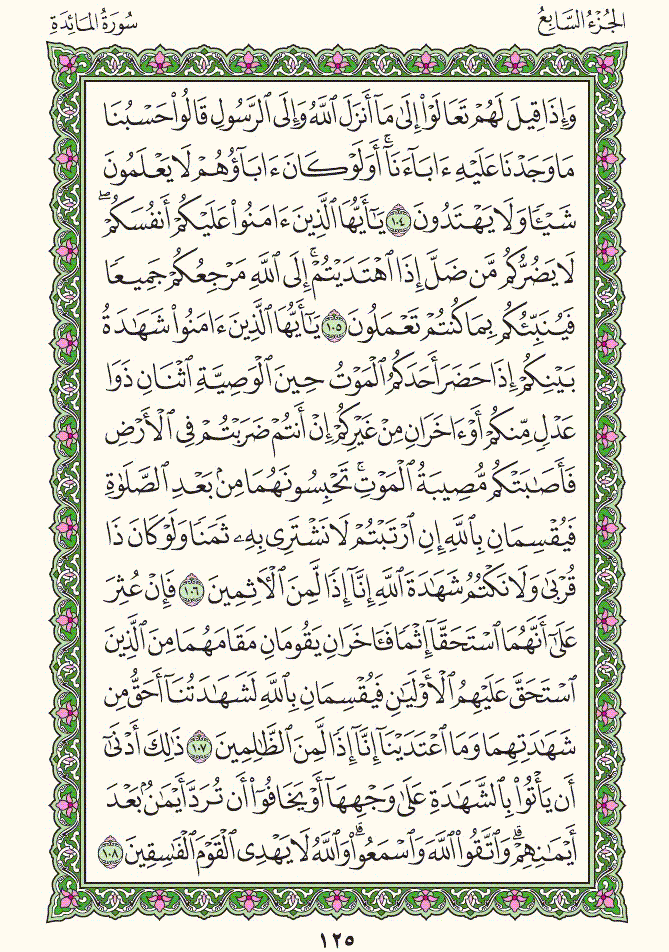 الجُزْءُ السَّابِعُ
سُورَةُ المَائِدَةِ
وَإِذَا قِيلَ لَهُمۡ تَعَالَوۡاْ إِلَىٰ مَآ أَنزَلَ ٱللَّهُ وَإِلَى ٱلرَّسُولِ قَالُواْ حَسۡبُنَا
مَا وَجَدۡنَا عَلَيۡهِ ءَابَآءَنَآۚ أَوَلَوۡ كَانَ ءَابَآؤُهُمۡ لَا يَعۡلَمُونَ
شَيۡـٔٗا وَلَا يَهۡتَدُونَ ١٠٤ يَٰٓأَيُّهَا ٱلَّذِينَ ءَامَنُواْ عَلَيۡكُمۡ أَنفُسَكُمۡۖ
لَا يَضُرُّكُم مَّن ضَلَّ إِذَا ٱهۡتَدَيۡتُمۡۚ إِلَى ٱللَّهِ مَرۡجِعُكُمۡ جَمِيعٗا
فَيُنَبِّئُكُم بِمَا كُنتُمۡ تَعۡمَلُونَ ١٠٥ يَٰٓأَيُّهَا ٱلَّذِينَ ءَامَنُواْ شَهَٰدَةُ
بَيۡنِكُمۡ إِذَا حَضَرَ أَحَدَكُمُ ٱلۡمَوۡتُ حِينَ ٱلۡوَصِيَّةِ ٱثۡنَانِ ذَوَا
عَدۡلٖ مِّنكُمۡ أَوۡ ءَاخَرَانِ مِنۡ غَيۡرِكُمۡ إِنۡ أَنتُمۡ ضَرَبۡتُمۡ فِي ٱلۡأَرۡضِ
فَأَصَٰبَتۡكُم مُّصِيبَةُ ٱلۡمَوۡتِۚ تَحۡبِسُونَهُمَا مِنۢ بَعۡدِ ٱلصَّلَوٰةِ
فَيُقۡسِمَانِ بِٱللَّهِ إِنِ ٱرۡتَبۡتُمۡ لَا نَشۡتَرِي بِهِۦ ثَمَنٗا وَلَوۡ كَانَ ذَا
قُرۡبَىٰ وَلَا نَكۡتُمُ شَهَٰدَةَ ٱللَّهِ إِنَّآ إِذٗا لَّمِنَ ٱلۡأٓثِمِينَ ١٠٦ فَإِنۡ عُثِرَ
عَلَىٰٓ أَنَّهُمَا ٱسۡتَحَقَّآ إِثۡمٗا فَـَٔاخَرَانِ يَقُومَانِ مَقَامَهُمَا مِنَ ٱلَّذِينَ
ٱسۡتَحَقَّ عَلَيۡهِمُ ٱلۡأَوۡلَيَٰنِ فَيُقۡسِمَانِ بِٱللَّهِ لَشَهَٰدَتُنَآ أَحَقُّ مِن
شَهَٰدَتِهِمَا وَمَا ٱعۡتَدَيۡنَآ إِنَّآ إِذٗا لَّمِنَ ٱلظَّٰلِمِينَ ١٠٧ ذَٰلِكَ أَدۡنَىٰٓ
أَن يَأۡتُواْ بِٱلشَّهَٰدَةِ عَلَىٰ وَجۡهِهَآ أَوۡ يَخَافُوٓاْ أَن تُرَدَّ أَيۡمَٰنُۢ بَعۡدَ
أَيۡمَٰنِهِمۡۗ وَٱتَّقُواْ ٱللَّهَ وَٱسۡمَعُواْۗ وَٱللَّهُ لَا يَهۡدِي ٱلۡقَوۡمَ ٱلۡفَٰسِقِينَ ١٠٨
١٢٥